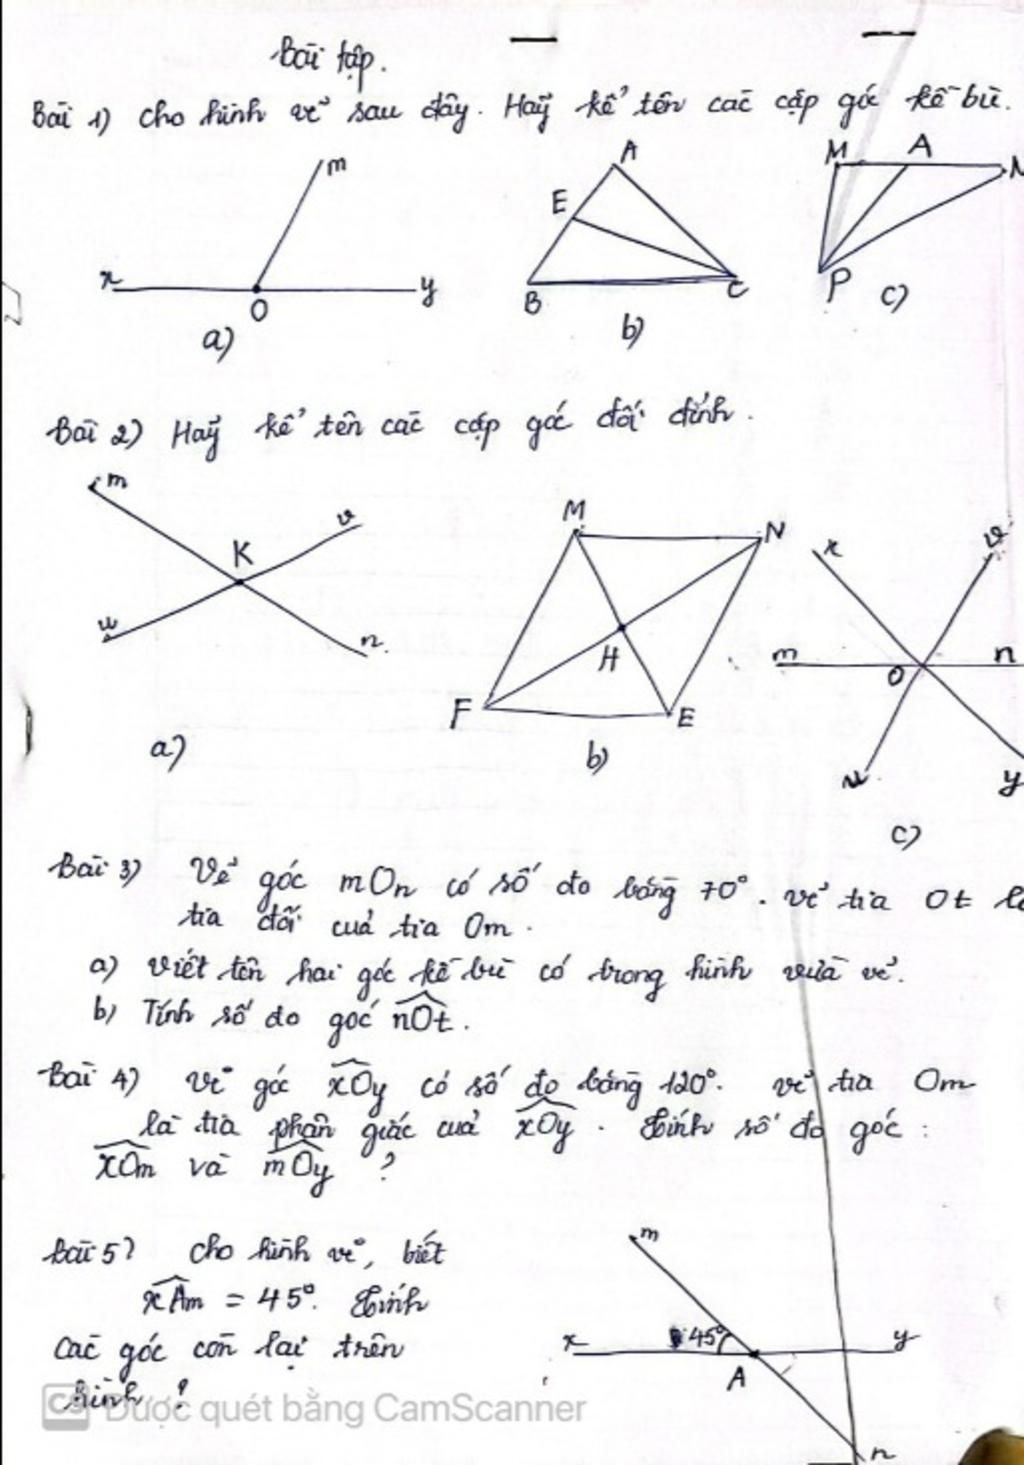 Bài tập.
Bài 1) Cho hình vẽ sau đây. Hãy kể tên các cặp góc kề bù.
m
x
O
y
a)
A
E
B
C
b)
M
A
N
P
c)
Bài 2) Hãy kể tên các cặp góc đối đỉnh.
m
v
K
u
n
a)
M
N
H
F
E
b)
x
v
m
O
n
u
y
c)
Bài 3) Vẽ góc mOn có số đo bằng 70°. Vẽ tia Ot là
tia đối của tia Om.
a) Viết tên hai góc kề bù có trong hình vừa vẽ.
b) Tính số đo góc nOt.
Bài 4) Vẽ góc xOy có số đo bằng 120°. Vẽ tia Om
là tia phân giác của xOy. Tính số đo góc:
xOm và mOy ?
Bài 5) Cho hình vẽ, biết
xAm = 45°. Tính
các góc còn lại trên
hình ?
m
x
45°
A
y
n
CS Được quét bằng CamScanner